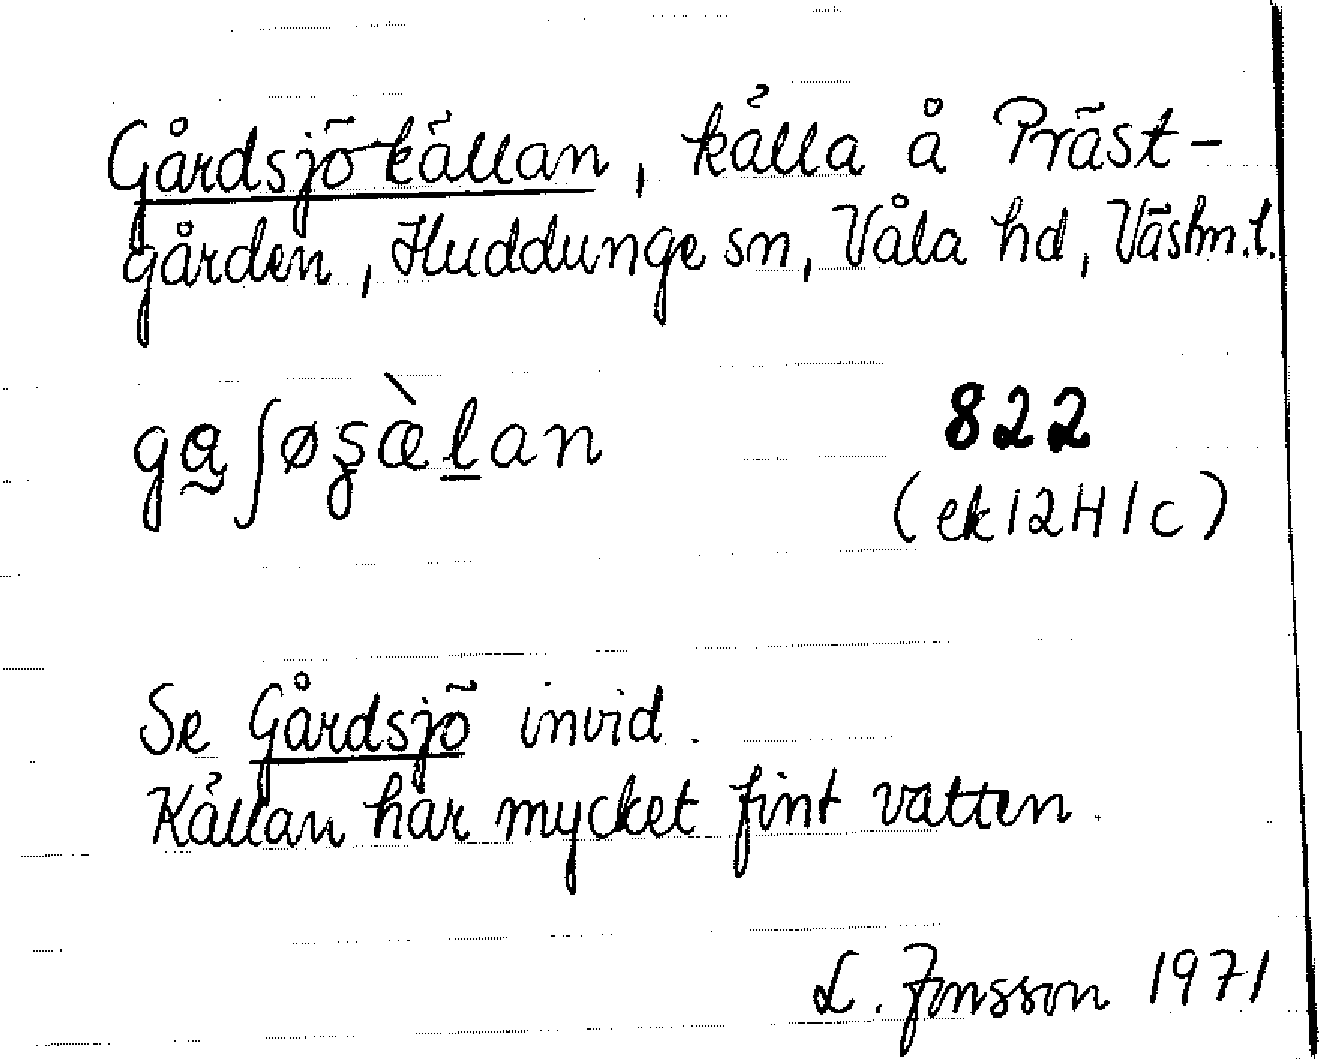 Gårdsjökällan, källa å Präst-
gården, Huddunge sn, Våla hd, Västm.l.
ga̰ʃøʂæ̀l̠an 822
(ek 12H1c)
Se Gårdsjö invid.
Källan har mycket fint vatten.
L. Jonsson 1971